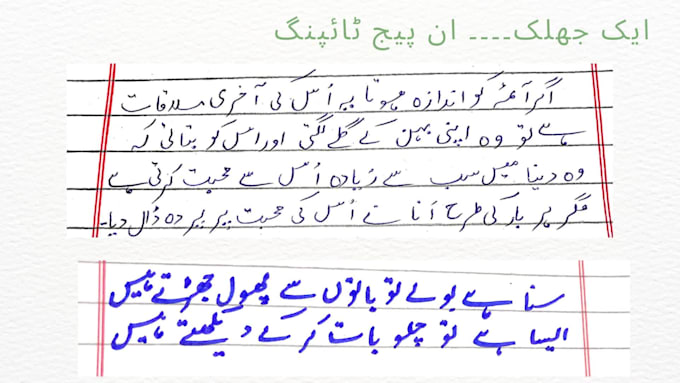 ایک جھلک۔۔۔۔ ان پیج ٹائپنگ
اگر آئمہ کو اندازہ ہوتا یہ اُس کی آخری ملاقات
ہے تو وہ اپنی بہن کے گلے لگتی اور اس کو بتاتی کہ
وہ دنیا میں سب سے زیادہ اُس سے محبت کرتی ہے
مگر ہر بار کی طرح اَنا نے اُس کی محبت پر پردہ ڈال دیا۔
سنا ہے بولے تو باتوں سے پھول جھڑتے ہیں
ایسا ہے تو چلو بات کر کے دیکھتے ہیں